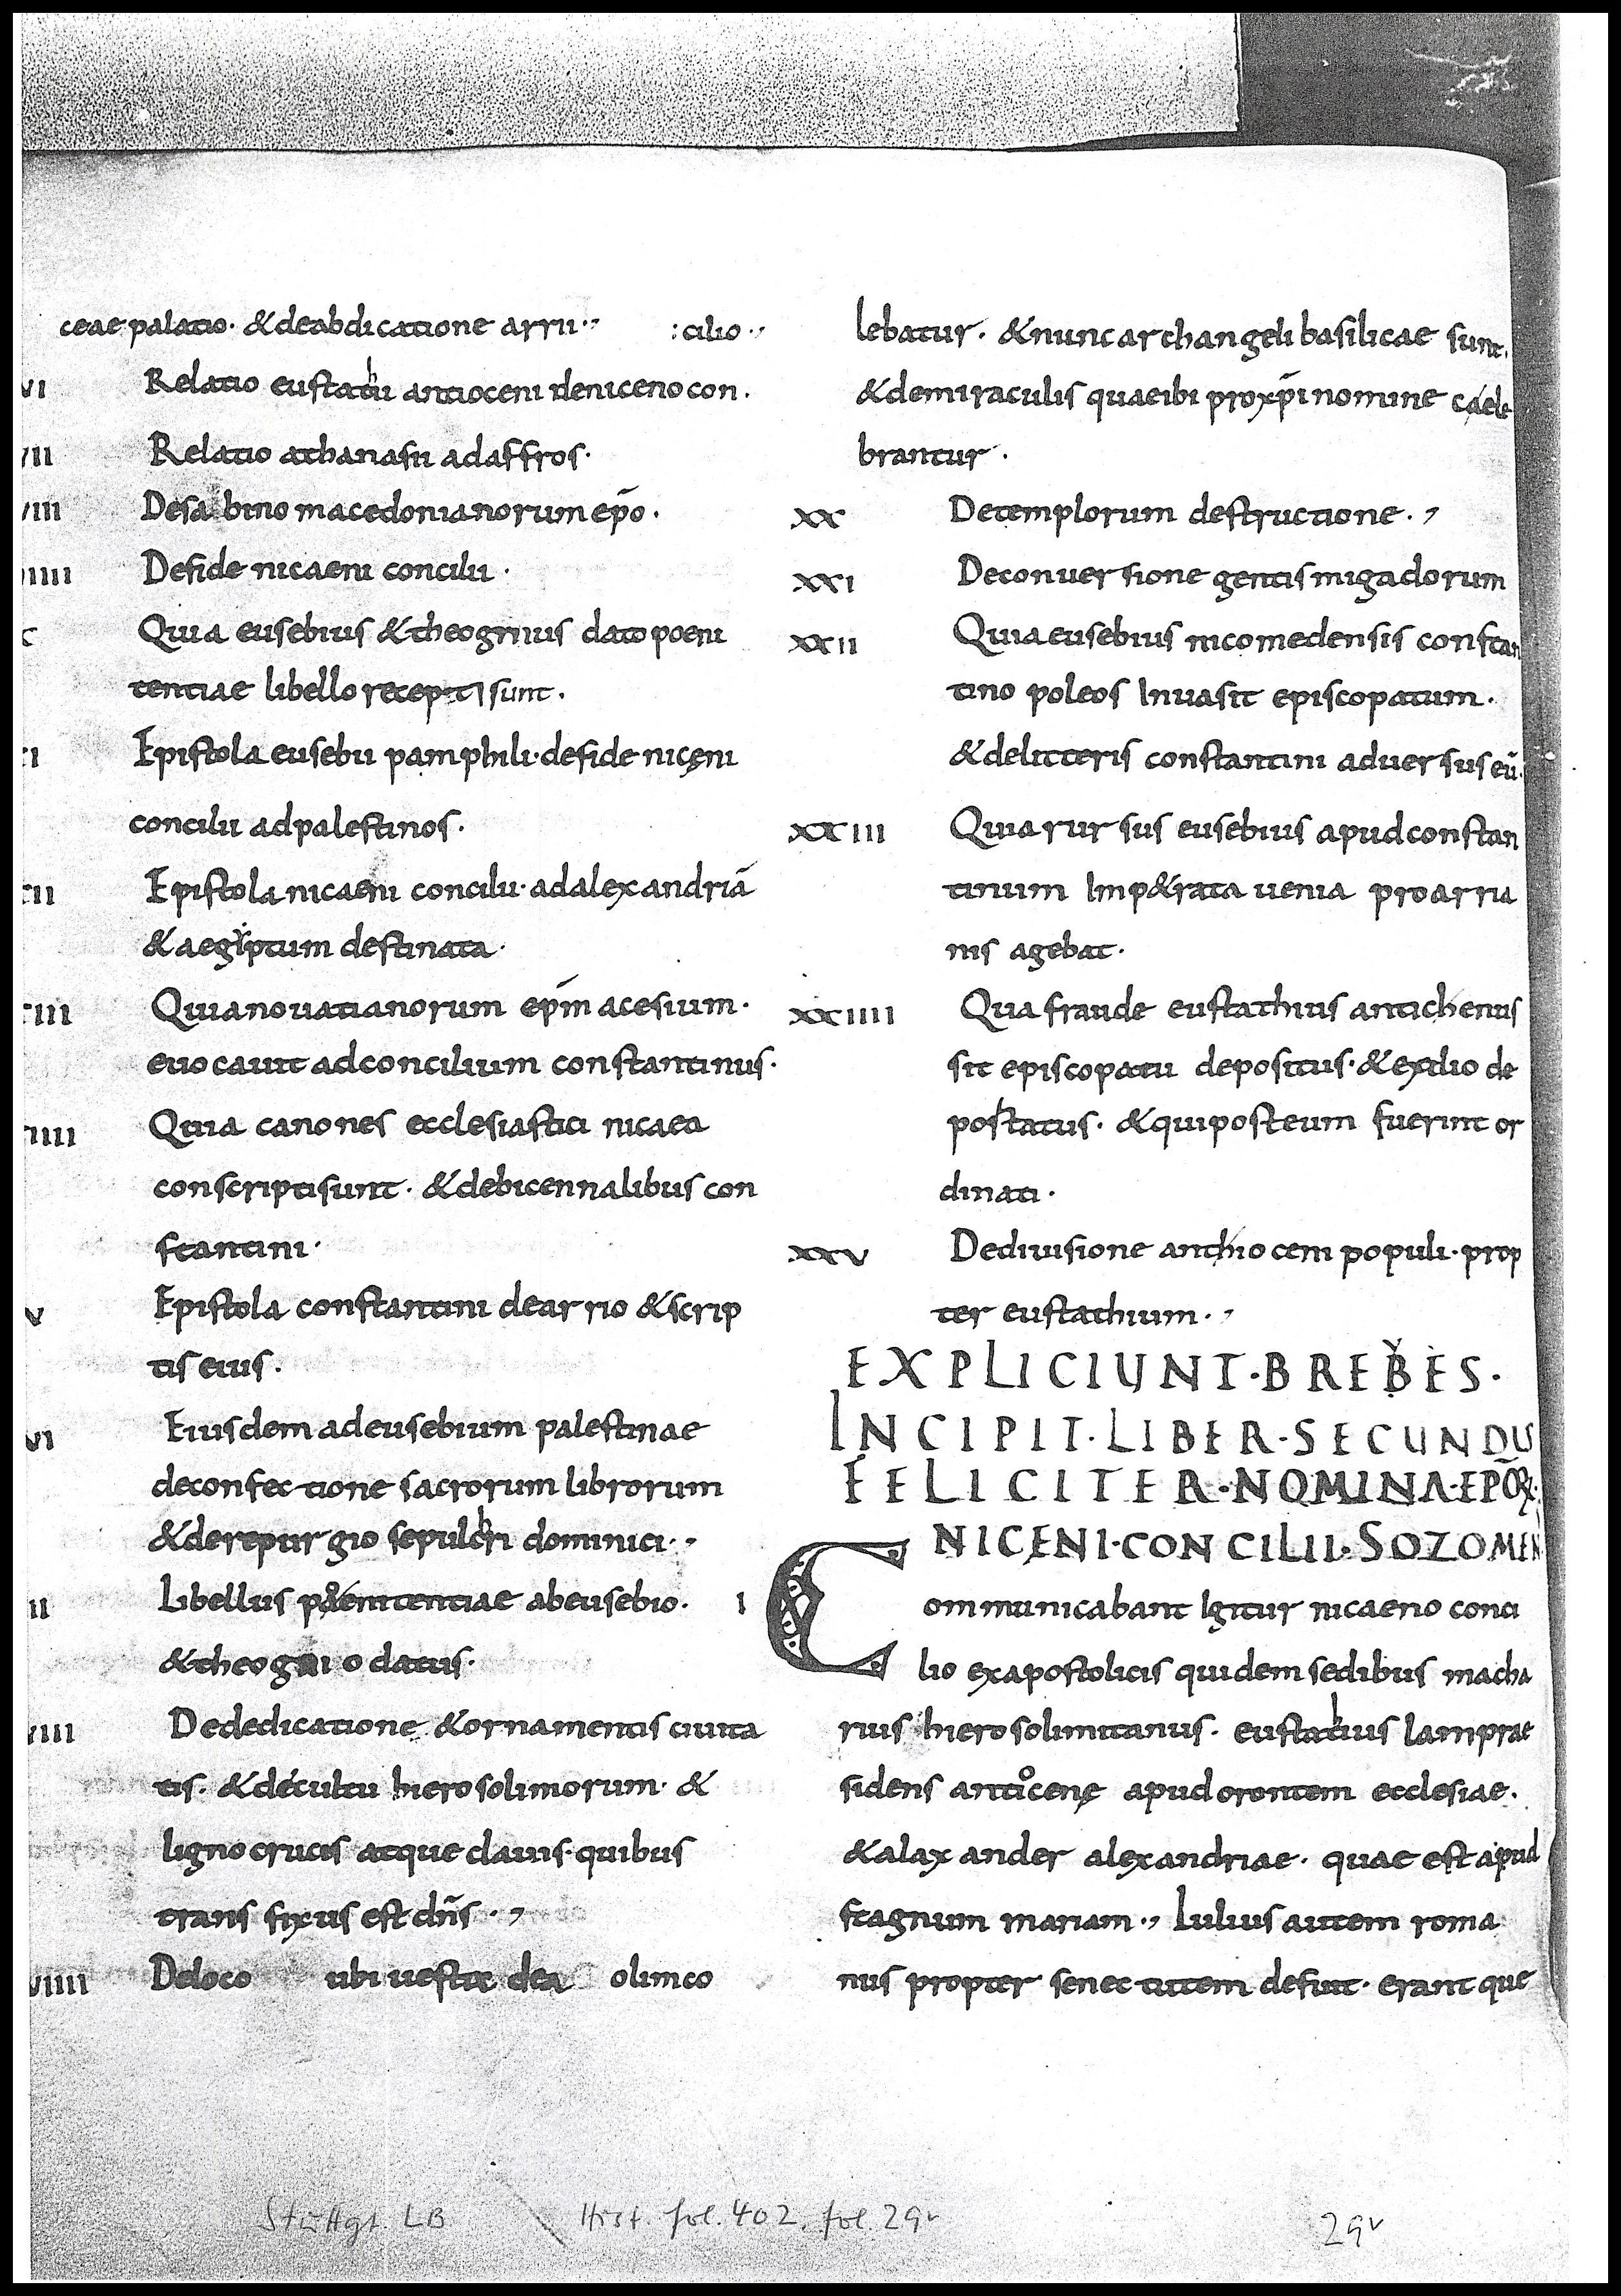 ceae palatio · & deabdicatione arrii ·,
:cilio ·,
VI Relatio eustathii antioceni deniceno con ·
VII Relatio athanasii adaffros ·
VIII Desabino macedonianorum ep̄o ·
VIIII Defide nicaeni concilii ·
X Quia eusebius & theognius dato poeni
tentiae libello recepti sunt ·
XI Epistola eusebii pamphili · defide nicęni
concilii adpalestinos ·
XII Epistola nicaeni concilii · adalexandriā
& aegiptum destinata ·
XIII Quia nouatianorum ep̄m acesium ·
euocauit adconcilium constantinus ·
XIIII Quia canones ecclesiastici nicaea
conscriptisunt · & debicennalibus con
stantini ·
XV Epistola constantini dearrio & scrip
tis eius ·
XVI Eiusdem adeusebium palestinae
deconfectione sacrorum librorum
& derepurgio sepulchri dominici ·,
XVII Libellus paenitentiae abeusebio ·
& theognio datus ·
XVIII Dededicatione & ornamentis ciuita
tis · & decultu hierosolimorum · &
ligno crucis atque clauis · quibus
transfixus est dn̄s ·,
XVIIII Deloco ubi uestae dea olim co
lebatur · & nunc archangeli basilicae sunt ·
& demiraculis quaeibi proxp̄i nomine caele
brantur ·
XX Detemplorum destructione ·,
XXI Deconuersione gentis migadorum
XXII Quia eusebius nicomedensis constan
tinopoleos Inuasit episcopatum ·
& delitteris constantini aduersus eū ·
XXIII Quia rursus eusebius apud constan
tinum Imp&rata uenia pro arria
nis agebat ·
XXIIII Qua fraude eustathius antichenus
sit episcopatu depositus · & exilio de
portatus · & quiposteum fuerint or
dinati ·
XXV Dediuisione anthioceni populi · prop
ter eustathium ·,
EXPLICIUNT · BREBES ·
INCIPIT · LIBER · SECUNDUS
FELICITER · NOMINA · EPŌꝜ ·
NICENI · CONCILII · SOZOMENI
I Communicabant Igitur nicaeno conci
lio exapostolicis quidem sedibus macha
rius hierosolimitanus · eustathius Iam prae
sidens antiocenę apud orontem ecclesiae ·
& alaxander alexandriae · quae est apud
stagnum mariam ·, Iulius autem roma
nus propter senectutem defuit · erant que
Stuttgt. LB Hist. fol. 402, fol. 29v
29v